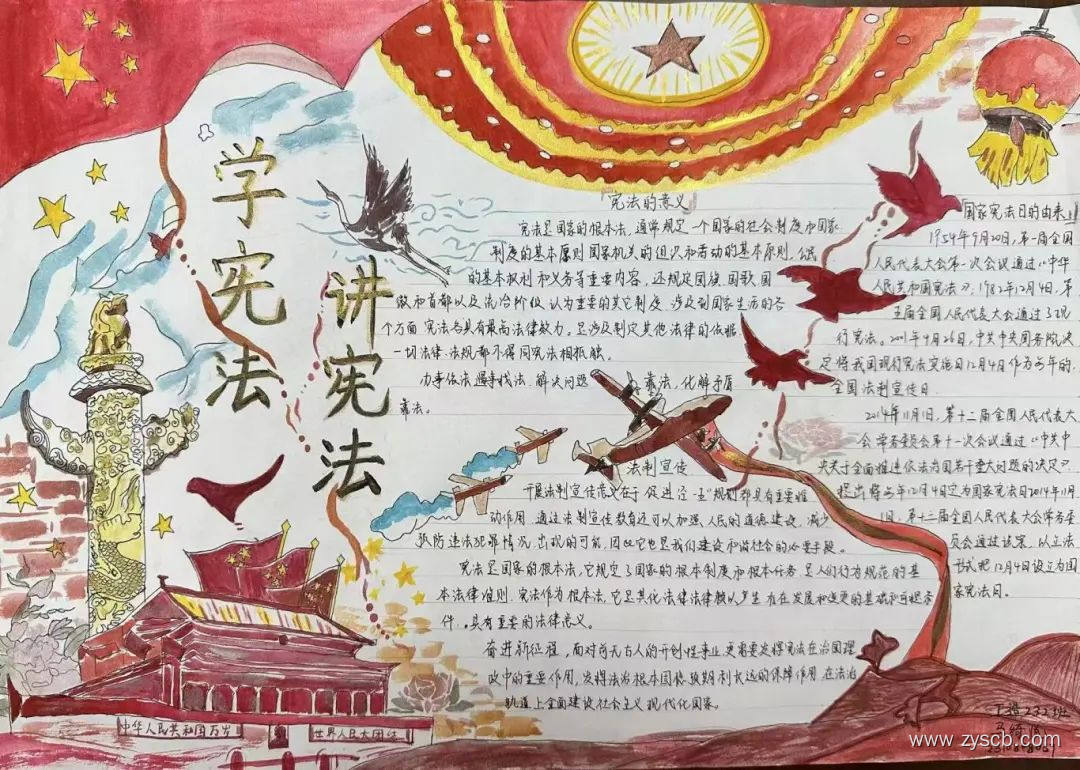 学宪法
讲宪法
宪法的意义
宪法是国家的根本法,通常规定一个国家的社会制度和国家
制度的基本原则 国家机关的组织和活动的基本原则,公民
的基本权利和义务等重要内容,还规定国旗,国歌国
徽和首都以及统治阶级,认为重要的其它制度 涉及到国家生活的各
个方面 宪法具有最高法律效力。是涉及制定其他法律的依据
一切法律、法规都不得同宪法相抵触
办事依法 遇事找法、解决问题 靠法,化解矛盾
靠法。
法制宣传
开展法制宣传意义在于促进 规划都具有重要推
动作用 通过法制宣传教育还可以加强人民的道德建设,减少
预防违法犯罪情况,出现的可能,因此它也是我们建设和谐社会的必要手段。
宪法是国家的根本法,它规定了国家的根本制度和根本任务 是人们行为规范的基
本法律准则. 宪法作为根本法,它是其他法律法律赖以产生 存在发展和变更的基础和前提条
件。具有重要的法律意义。
奋进新征程,面对前无古人的开创性事业 更需要发挥宪法在治国理
政中的重要作用,发挥法治根本固稳预期利长远的保障作用 在法治
轨道上全面建设社会主义现代化国家。
国家宪法日的由来
1954年9月20日,第一届全国
人民代表大会第一次会议通过《中华
人民共和国宪法》,1982年12月4日,第
五届全国人民代表大会通过了现
行宪法。2001年4月26日,中共中央国务院决
定将我国现行宪法实施日12月4日作为每年的,
全国法制宣传日
2014年11月1日,第十二届全国人民代表大
会常务委员会第十一次会议通过《中共中
央关于全面推进依法治国若干重大问题的决定》
提出将每年12月4日定为国家宪法日2014年11月
1日,第十二届全国人民代表大会常务委
员会通过该案,以立法
形式把12月4日设立为国
家宪法日。
中华人民共和国万岁
世界人民大团结
232班
www.zyscb.com